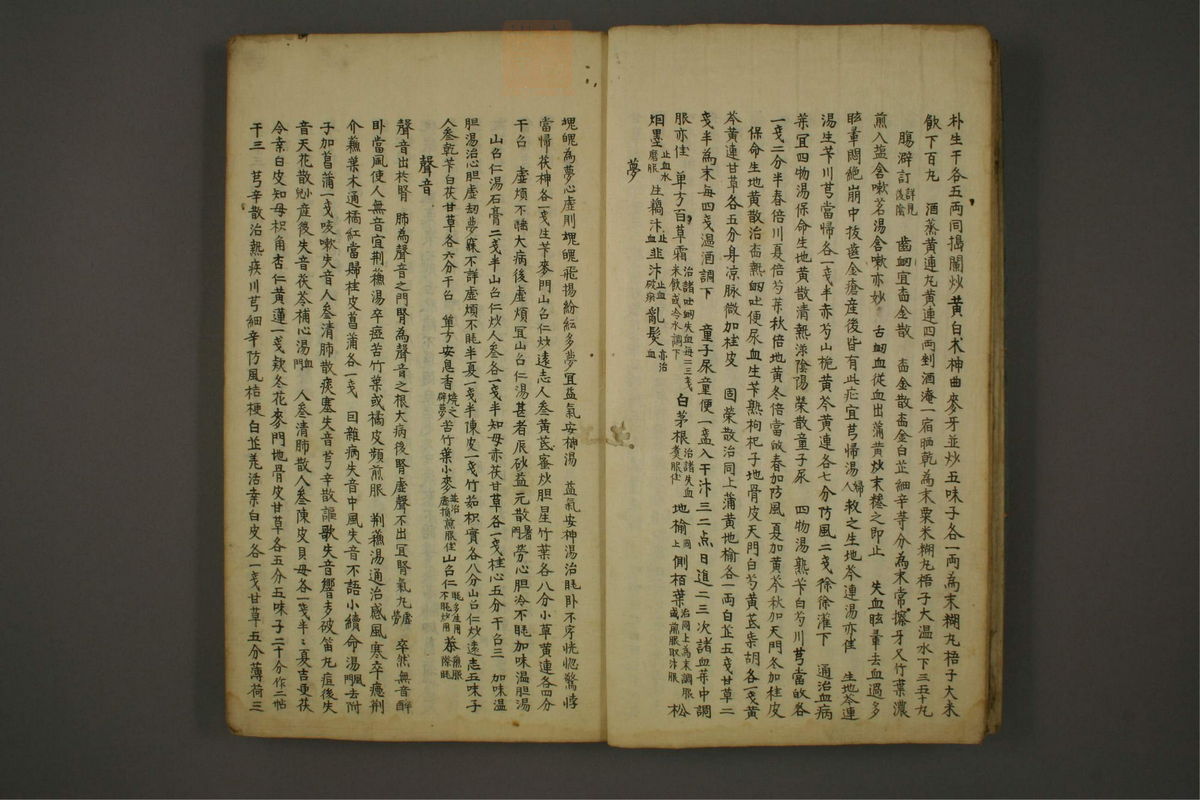 朴生干各五両同搗闌炒黄白木神曲麥牙並炒五味子各一両為末糊丸梧子大米
飲下百丸 酒蒸黄連丸黄連四両剉酒淹一宿晒乾為末粟米糊丸梧子大温水下三五十丸
腸澼訂詳見後陰 齒衄宜欝金散 欝金散欝金白芷細辛等分為末常擦牙又竹葉濃
煎入塩含嗽茗湯含嗽亦妙 舌衄血從血出蒲黄炒末糝之即止 失血眩暈去血過多
眩暈悶絶崩中抜齒金瘡産後皆有此症宜芎歸湯婦人救之生地芩連湯亦佳 生地芩連
湯生芐川芎當帰各一戔半赤芍山梔黄芩黄連各七分防風二戔徐徐灌下 通治血病
葉宜四物湯保命生地黄散清熱滋陰陽榮散童子尿 四物湯熟芐白芍川芎當敀各
一戔二分半春倍川夏倍芍葉秋倍地黄冬倍當敀春加防風夏加黄芩秋加天門冬加桂皮
保命生地黄散治欝熱衄吐便尿血生芐熟枸杞子地骨皮天門白芍黄芪柴胡各一戔黄
芩黄連甘草各五分身凉脉微加桂皮 固榮散治同上蒲黄地榆各一両白芷五戔甘草二
戔半為末每四戔温酒調下 童子尿童便一盞入干汴三二点日進二三次諸血葉中調
服亦佳 單方百草霜治諸吐衄失血每二三戔米飲或冷水調下 白茅根治諸失血煑服佳 地榆同上側栢葉治同上為末調服或煎服取汴服 松
烟墨止血水磨服 生藕汴止血韭汴止血破瘀亂髮亦治血
夢
塊魄為夢心虛則塊魄飛揚紛紜多夢宜益氣安神湯 益氣安神湯治眊卧不寧恍惚驚悸
當帰茯神各一戔生芐麥門山召仁炒遠志人叅黄芪蜜炒胆星竹葉各八分小草黄連各四分
干召 虛煩不眊大病後虛煩宜山召仁湯甚者辰砂益元散暑門勞心胆冷不眊加味温胆湯
山召仁湯石膏二戔半山召仁炒人叅各一戔半知母赤茯甘草各一戔桂心五分干召三 加味温
胆湯治心胆虛刼夢寐不詳虛煩不眊半夏一戔半陳皮一戔竹茹枳實各八分山召仁炒遠志五味子
人叅乾芐白茯甘草各六分干召 單方安息香燒之辟夢苦竹葉小麥並治虛煩煎服佳山召仁眊多生用不眊炒用 叅煎服除眊
聲音
聲音出扵腎 肺為聲音之門腎為聲音之根大病後腎虛聲不出宜腎氣丸虛勞 卒然無音醉
卧當風使人無音宜荆蘓湯卒瘂苦竹葉或橘皮頻煎服 荆蘓湯通治感風寒卒瘂荆
介蘓葉木通橘紅當歸桂皮菖蒲各一戔 回雜病失音中風失音不語小續命湯風門去附
子加菖蒲一戔咳嗽失音人叅清肺散痰塞失音芎辛散謳歌失音響声破笛丸痘後失
音天花散小兒産後失音茯苓補心湯血門 人叅清肺散人叅陳皮貝母各一戔半半夏吉更茯
令桒白皮知母枳角杏仁黄蓮一戔欵冬花麥門地骨皮甘草各五分五味子二十分作二帖
干三 芎辛散治熱痰川芎細辛防風桔梗白芷羌活桒白皮各一戔甘草五分薄荷三